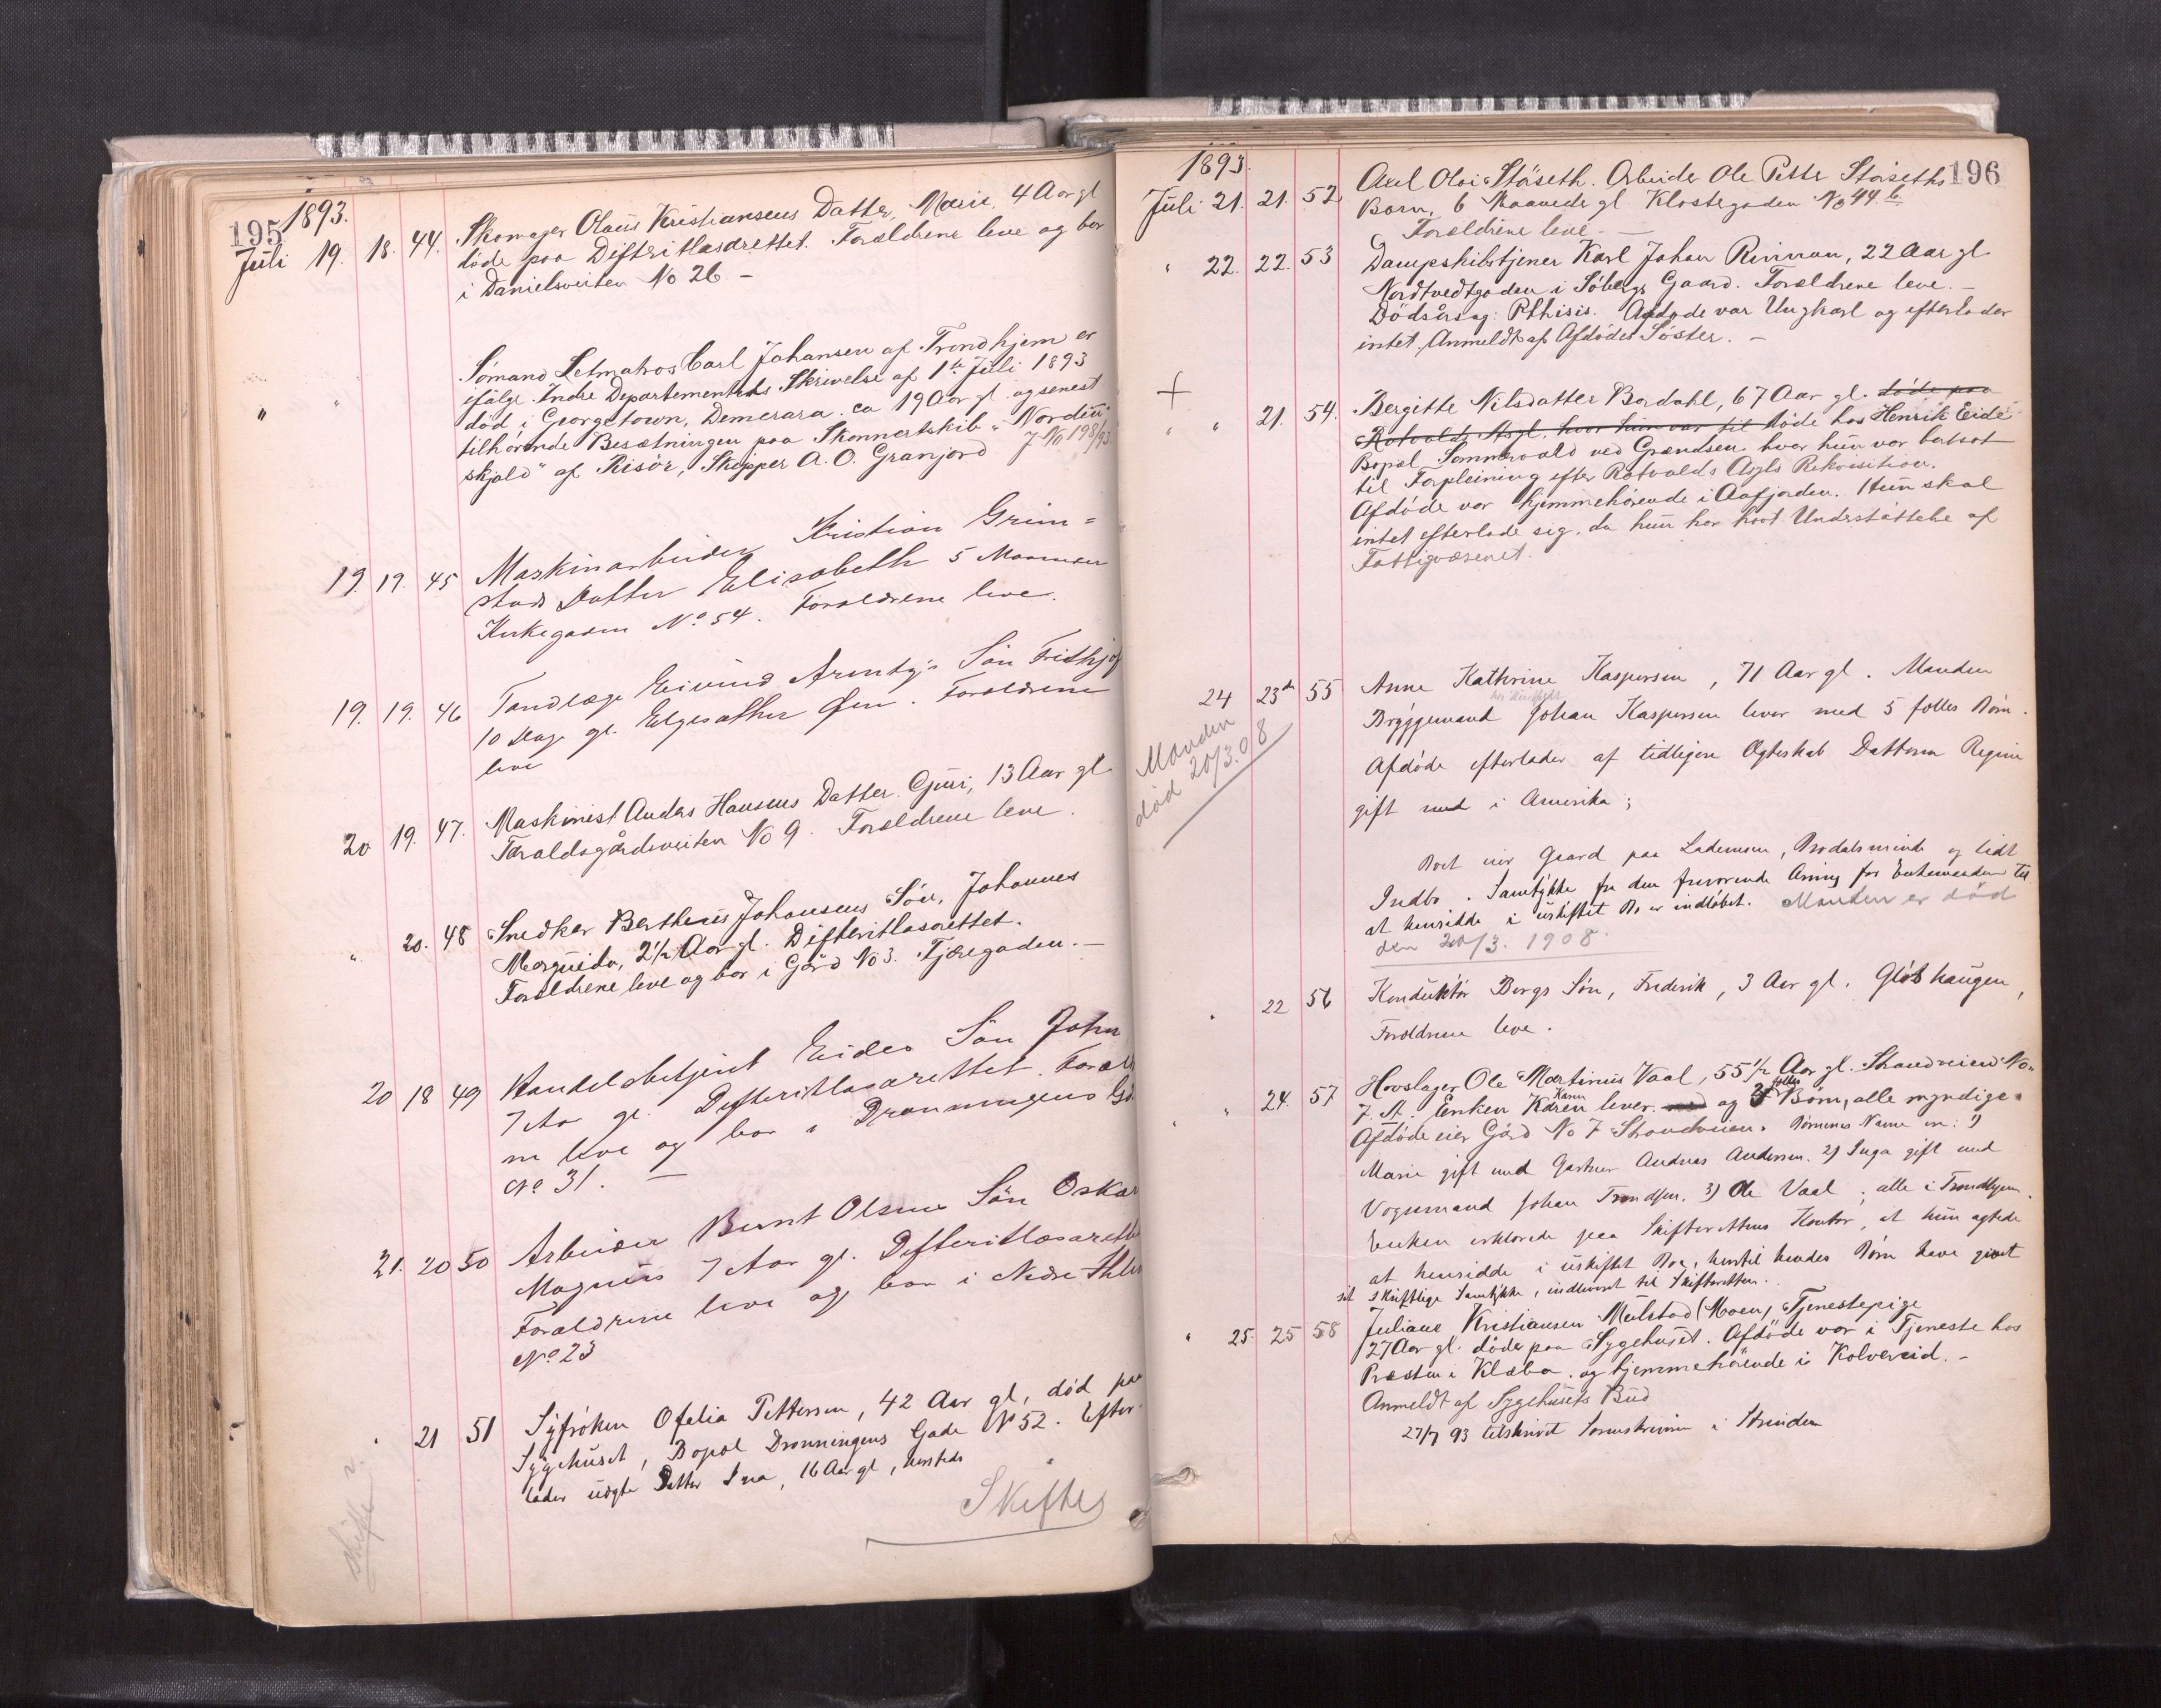 195 1893.
Juli 19. 18. 44. Skomager Olaus Kristiansens Datter, Marie, 4 Aar gl
døde paa Difteritlasarettet. Forældrene leve og bor
i Danielsveiten No 26. —
" " Sømand Letmatros Carl Johansen af Trondhjem er
ifølge Indre Departementets Skrivelse af 1ste Juli 1893
død i Georgetown, Demerara. ca 19 Aar gl. og senest
tilhørende Besætningen paa Skonnertskib "Norden-
skjold" af Risør, Skipper A. O. Granjord J No 198/93.
19. 19. 45 Maskinarbeider Kristian Grim=
stads Datter Elisabeth 5 Maaneder
Kirkegaden No 54. Forældrene leve.
19. 19. 46 Tandlæge Eivind Arentz's Søn Frithjof
10 Dage gl. Elgesæther Øen. Forældrene
leve
20 19. 47. Maskinist Anders Hansens Datter Gjuri, 13 Aar gl
Taraldsgårdsveiten No 9. Forældrene leve.
" 20. 48 Snedker Bertheus Johansens Søn, Johannes
Margvido, 2½ Aar gl. Difteritlasarettet.
Forældrene leve og bor i Gård No 3. Tjæregaden. —
20 18 49 Handelsbetjent Eides Søn John
7 Aar gl. Difteritlasarettet. Foræld
ne leve og bor i Dronningens Ga
No 31. —
21. 20 50 Arbeider Bernt Olsens Søn Oskar
Magnus 7 Aar gl. Difteritlasarettet
Forældrene leve og bor i Nedre
No 23
" 21 51 Syfrøken Ofelia Pettersen, 42 Aar gl, død paa
Sygehuset, Bopæl Dronningens Gade No 52. Efter-
lader uægte Datter Ina, 16 Aar gl, hersteds
Skiftes
skifte?
1893. 196
Juli 21. 21. 52 Axel Olai Støseth. Arbeider Ole Petter Støseths
Barn, 6 Maaneder gl Klostergaden No 44 b.
Forældrene leve. —
" 22. 22. 53 Dampskibstjener Karl Johan Rinnan, 22 Aar gl
Nordtvedtgaden i Søbergs Gaard. Forældrene leve. —
Dødsårsag: Pthisis. Afdøde var Ungkarl og efterlader
intet. Anmeldt af Afdødes Søster. —
+
" " 21. 54. Bergitte Nilsdatter Bordahl, 67 Aar gl. døde paa
Rotvolds Asyl, hvor hun var til døde hos Henrik Eide
Bopæl Sommervold ved Grændsen hvor hun var bortsat
til Forpleining efter Rotvolds Asyls Rekvisition.
Afdøde var hjemmehørende i Aafjorden. Hun skal
intet efterlade sig, da hun har havt Understøttelse af
Fattigvæsenet.
24 23de 55 Anne Kathrine Kaspersen, 71 Aar gl. Manden
Bryggemand Johan Kaspersen lever med 5 fælles Børn.
Afdøde efterlader af tidligere Ægteskab Datteren Regine
gift med i Amerika;
Manden
død 20/3.08
Boet eier Gaard paa Lademoen, Brodalsminde og lidt
Indbo. Samtykke fra den fraværende Arving for Enkemanden til
at hensidde i uskiftet Bo er indløbet. Manden er død
den 20/3. 1908.
" 22 56 Konduktør Bergs Søn, Frederik, 3 Aar gl. Gløshaugen,
Forældrene leve.
" 24. 57 Hovslager Ole Martinus Vaal, 55½ Aar gl. Strandveien No
7 A. Enken Karen Karen lever og 3 fælles Børn, alle myndige.
Afdøde eier Gård No 7 Strandveien. Børnenes Navne er: 1)
Marie gift med Gartner Andreas Andersen. 2) Inga gift med
Vognmand Johan Trondsen. 3) Ole Vaal; alle i Trondhjem.
Enken erklærede paa Skifterettens Kontor, at hun agtede
at hensidde i uskiftet Bo, hvortil hendes Børn have givet
sit skriftlige Samtykke, indleveret til Skifteretten.
" 25. 25 58 Juliane Kristiansen Mulstad (Moen) Tjenestepige
27 Aar gl. døde paa Sygehuset. Afdøde var i Tjeneste hos
Præsten i Klæbo og hjemmehørende i Kolvereid. —
Anmeldt af Sygehusets Bud
27/7 93 tilskrevet Sorenskriveren i Strinden